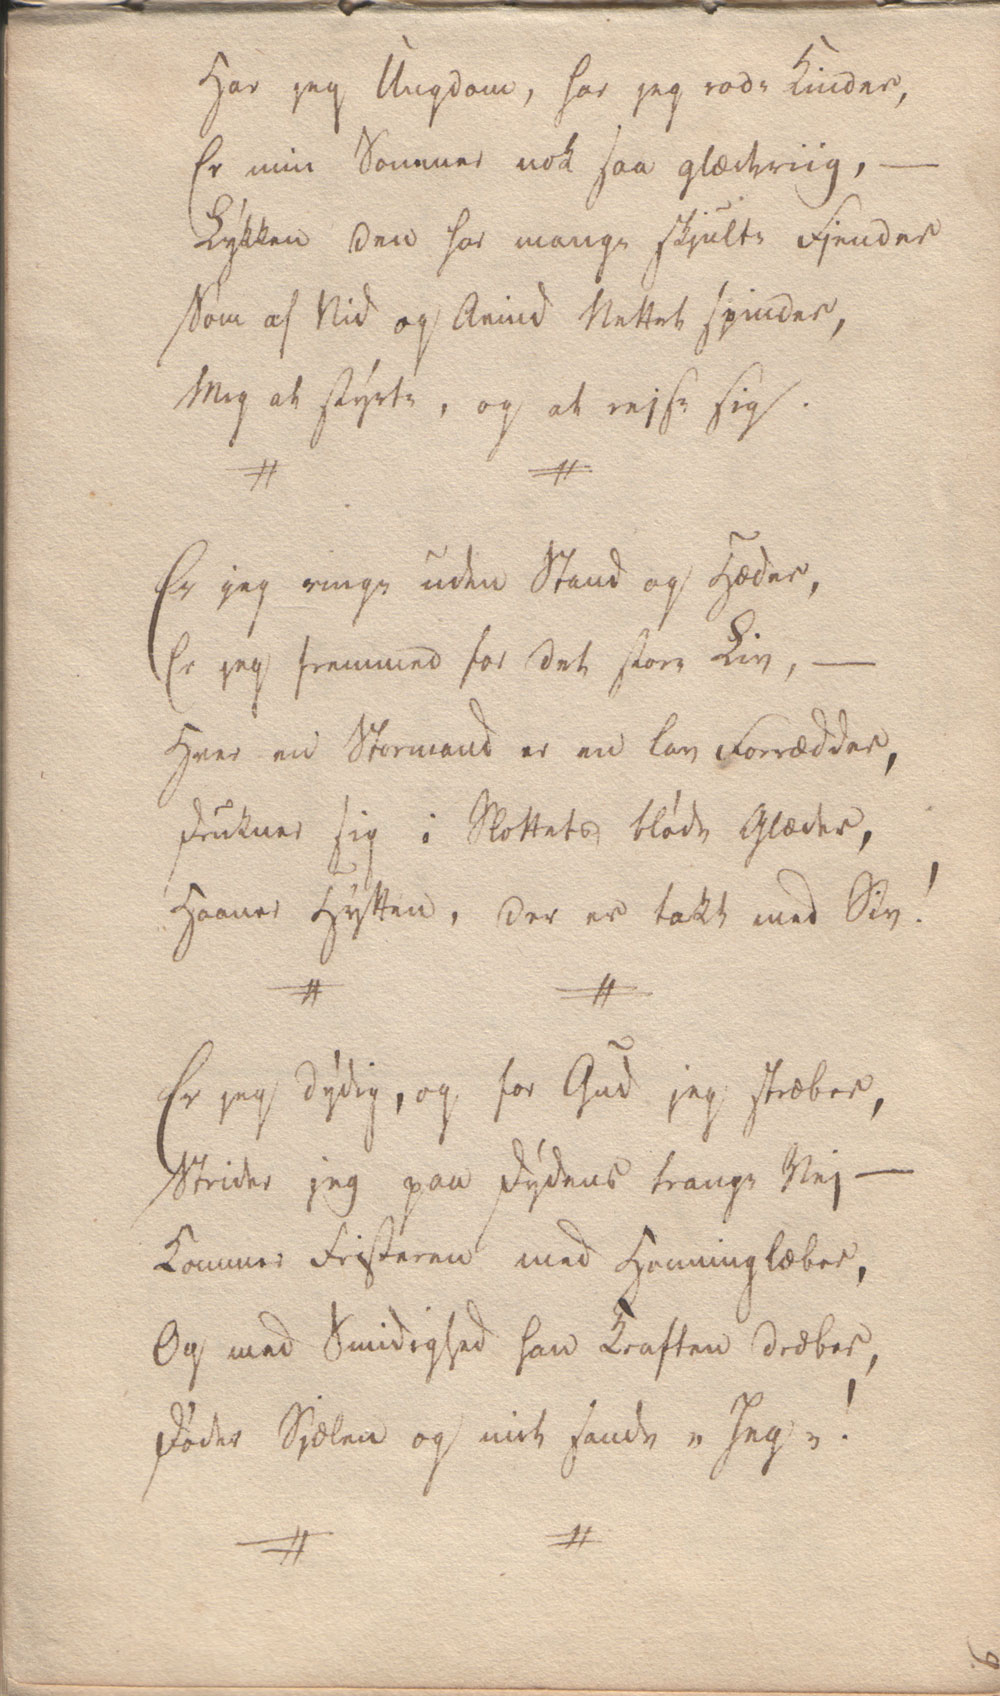 Har jeg Ungdom, har jeg røde Kinder,
Er min Sommer nok saa glæderiig, —
Lykken den har mange skjulte Fjender
Som af Nid og Avind Nettet spinder,
Mig at styrte, og at rejse sig.
# #
Er jeg ringe uden Stand og Hæder,
Er jeg fremmed for det store Liv, —
Hver en Stormand er en lav Forrædder,
Drukner sig i Slottets bløde Glæder,
Haaner Hytten, der er takt med Siv!
# #
Er jeg dydig, og for Gud jeg stræber,
Strider jeg paa Dydens trange Vej —
Kommer Fristeren med Honninglæber,
Og med Smidighed han Kraften dræber,
Døder Sjælen og mit sande „Jeg„!
# #
9.